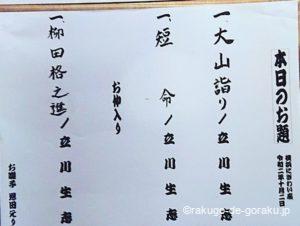 本日のお題
横浜にぎわい座
令和二年十月二日
一、大山詣り/立川生志
一、短 命/立川生志
お仲入り
一、柳田格之進/立川生志
お囃子 恩田えり
©rakugo-de-goraku.jp